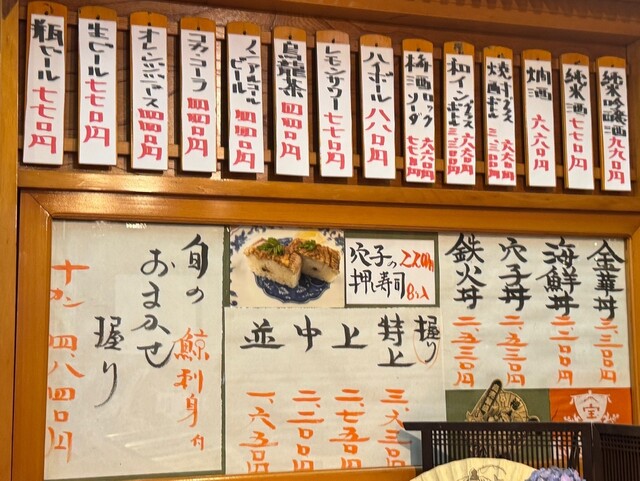 純米吟醸酒 九九〇円
純米酒 七七〇円
燗酒 六六〇円
焼酎 グラス 六六〇円
ボトル 三、三〇〇円
和イン グラス 六六〇円
ボトル 三、三〇〇円
梅酒 ロック 六六〇円
ソーダ 七七〇円
ハイボール 八八〇円
レモンサワー 七七〇円
烏龍茶 四四〇円
ノンアルコールビール 四四〇円
コカ・コーラ 四四〇円
オレンジジュース 四四〇円
生ビール 七七〇円
瓶ビール 七七〇円
金華丼 三、三〇〇円
海鮮丼 二、二〇〇円
穴子丼 二、五三〇円
鉄火丼 二、五三〇円
穴子の押し寿司
2200円
8コ入
握り
特上 三、六三〇円
上 二、七五〇円
中 二、二〇〇円
並 一、六五〇円
旬の
おまかせ
握り
鯨刺身付
十カン 四、八四〇円
宝